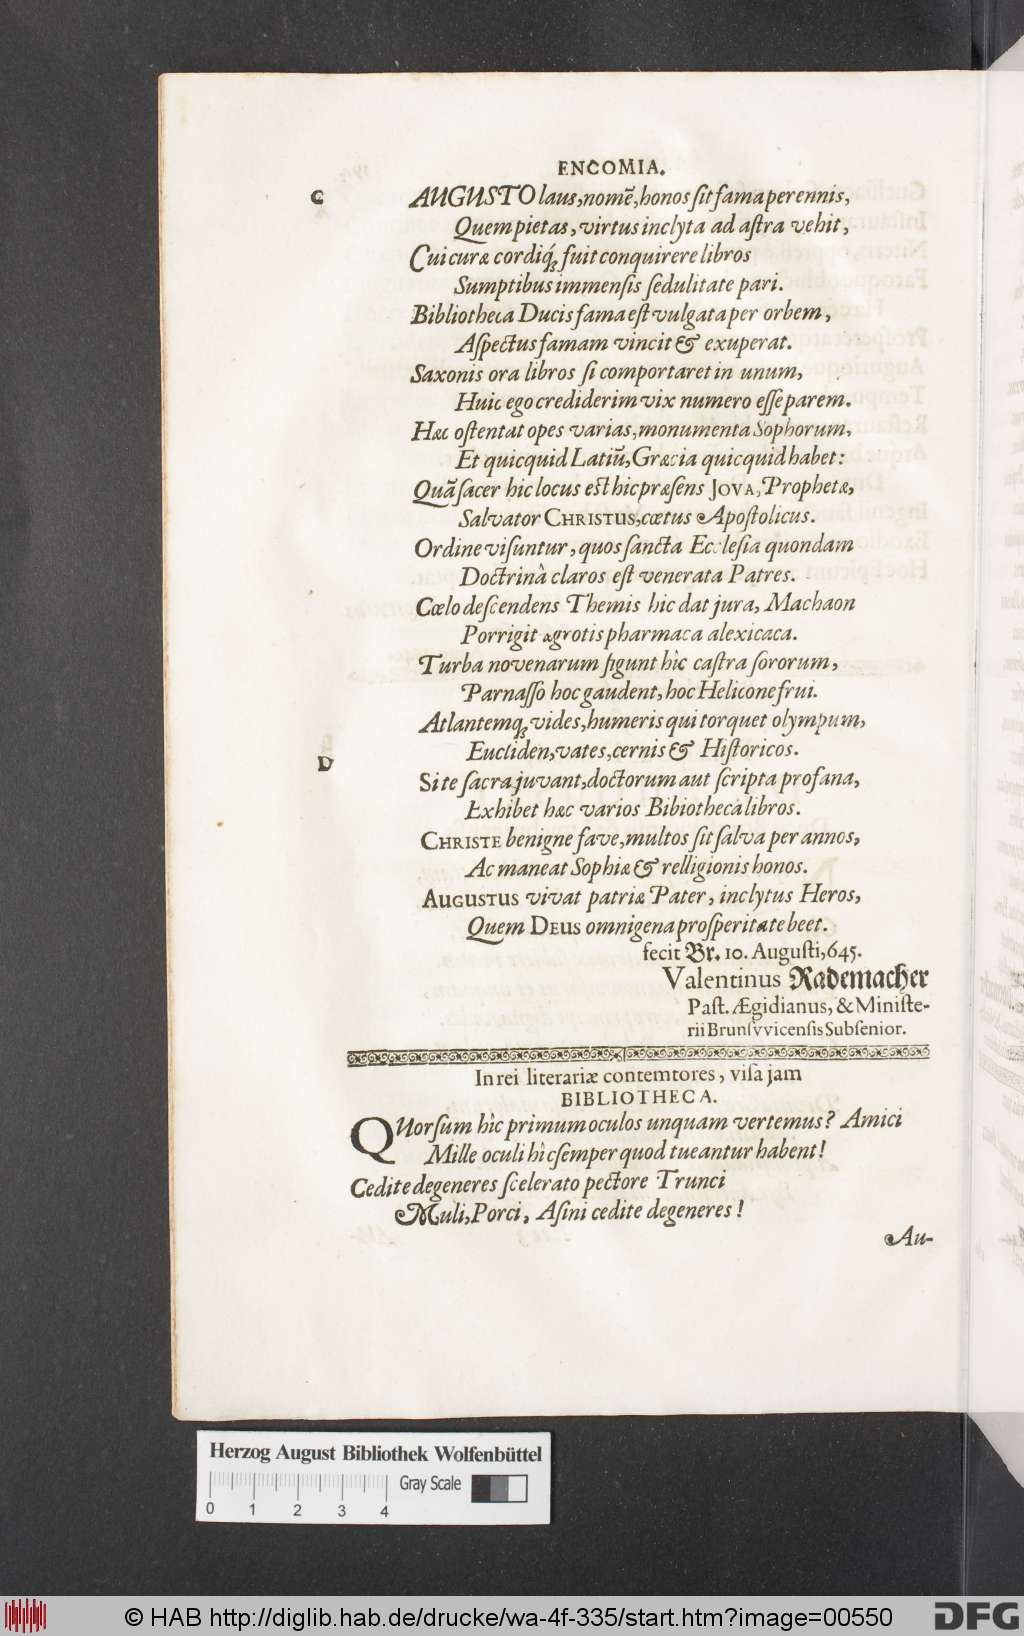 ENCOMIA.
C
AUGUSTO laus, nomē, honos ſit fama perennis,
Quem pietas, virtus inclyta ad aſtra vehit,
Cui curæ cordiq́; fuit conquirere libros
Sumptibus immenſis ſedulitate pari.
Bibliotheca Ducis fama eſt vulgata per orbem,
Aſpectus famam vincit & exuperat.
Saxonis ora libros ſi comportaret in unum,
Huic ego crediderim vix numero eſſe parem.
Hæc oſtentat opes varias, monumenta Sophorum,
Et quicquid Latiū, Græcia quicquid habet:
Quā ſacer hic locus eſt hic præſens JOVA, Prophetæ,
Salvator CHRISTUS, cœtus Apoſtolicus.
Ordine viſuntur, quos ſancta Eccleſia quondam
Doctrinâ claros eſt venerata Patres.
Cœlo deſcendens Themis hic dat jura, Machaon
Porrigit ægrotis pharmaca alexicaca.
Turba novenarum figunt hîc caſtra ſororum,
Parnaſſo hoc gaudent, hoc Helicone frui.
Atlantemq; vides, humeris qui torquet olympum,
Eucliden, vates, cernis & Hiſtoricos.
D
Si te ſacra juvant, doctorum aut ſcripta profana,
Exhibet hæc varios Bibiotheca libros.
CHRISTE benigne fave, multos ſit ſalva per annos,
Ac maneat Sophiæ & relligionis honos.
AUGUSTUS vivat patriæ Pater, inclytus Heros,
Quem DEUS omnigena proſperitate beet.
fecit Br. 10. Auguſti, 645.
Valentinus Rademacher
Paſt. Ægidianus, & Miniſte-
rii Brunſvvicenſis Subſenior.
In rei literariæ contemtores, viſa jam
BIBLIOTHECA.
QUorſum hîc primum oculos unquam vertemus? Amici
Mille oculi hîc ſemper quod tueantur habent!
Cedite degeneres ſcelerato pectore Trunci
Muli, Porci, Aſini cedite degeneres!
Au-
Herzog August Bibliothek Wolfenbüttel
Gray Scale
0 1 2 3 4
© HAB http://diglib.hab.de/drucke/wa-4f-335/start.htm?image=00550
DFG